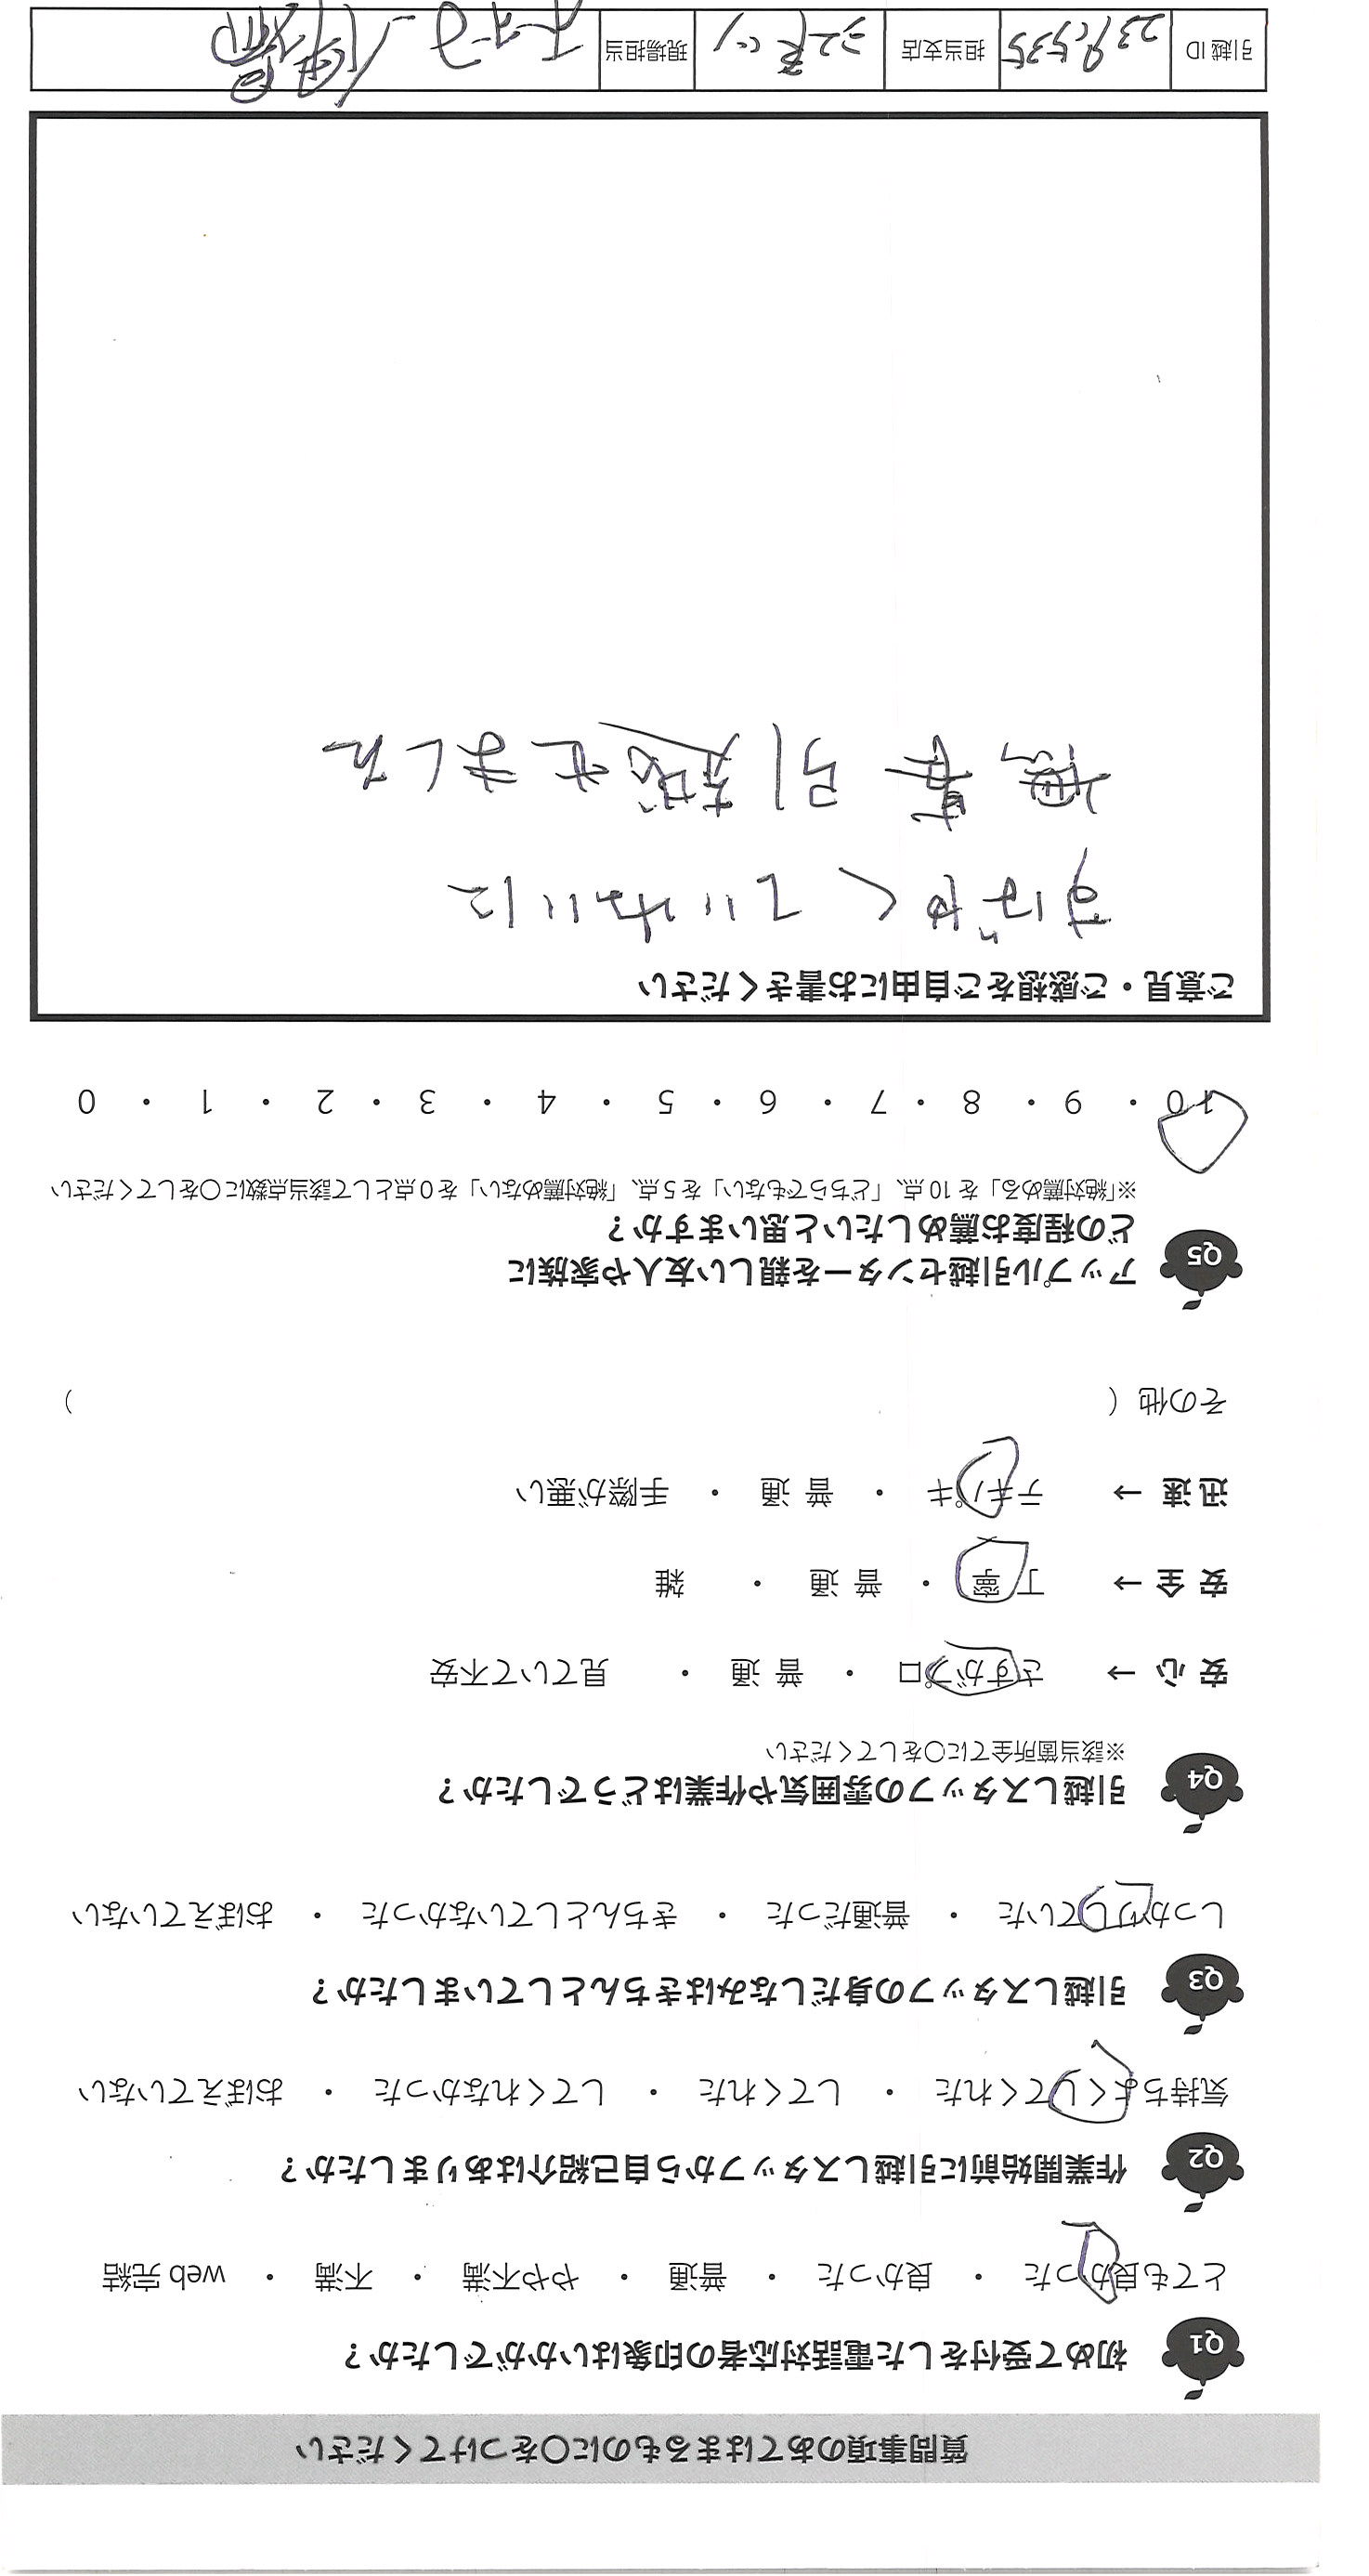 質問事項のあてはまるものに〇をつけてください
Q1 初めて受付をした電話対応者の印象はいかがでしたか?
とても良かった ・ 良かった ・ 普通 ・ やや不満 ・ 不満 ・ web 完結
Q2 作業開始前に引越しスタッフから自己紹介はありましたか?
気持ちよくしてくれた ・ してくれた ・ してくれなかった ・ おぼえていない
Q3 引越しスタッフの身だしなみはきちんとしていましたか?
しっかりしていた ・ 普通だった ・ きちんとしていなかった ・ おぼえていない
Q4 引越しスタッフの雰囲気や作業はどうでしたか?
※該当箇所全てに〇をしてください
安 心 → さすがプロ ・ 普 通 ・ 見ていて不安
安 全 → 丁 寧 ・ 普 通 ・ 雑
迅 速 → テキパキ ・ 普 通 ・ 手際が悪い
その他 ( )
Q5 アップル引越センターを親しい友人や家族に
どの程度お薦めしたいと思いますか?
※「絶対薦める」を 10 点、「どちらでもない」を 5 点、「絶対薦めない」を 0 点として該当点数に〇をしてください
10 ・ 9 ・ 8 ・ 7 ・ 6 ・ 5 ・ 4 ・ 3 ・ 2 ・ 1 ・ 0
ご意見・ご感想をご自由にお書きください
すばやく ていねいに
無事 引越せました
引越 ID 担当支店 現場担当